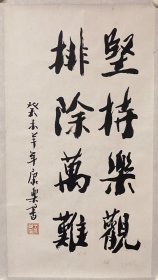 堅持樂觀
排除萬難
癸未羊年康樂書